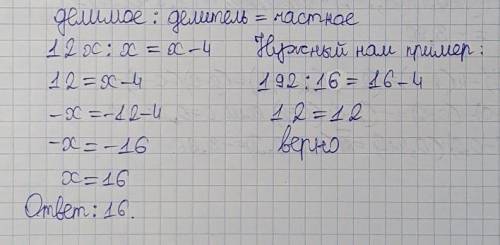 делимое : делитель = частное
12x : x = x-4
12 = x-4
-x = -12-4
-x = -16
x = 16
Ответ: 16.
Нужный нам пример:
192 : 16 = 16-4
12 = 12
верно